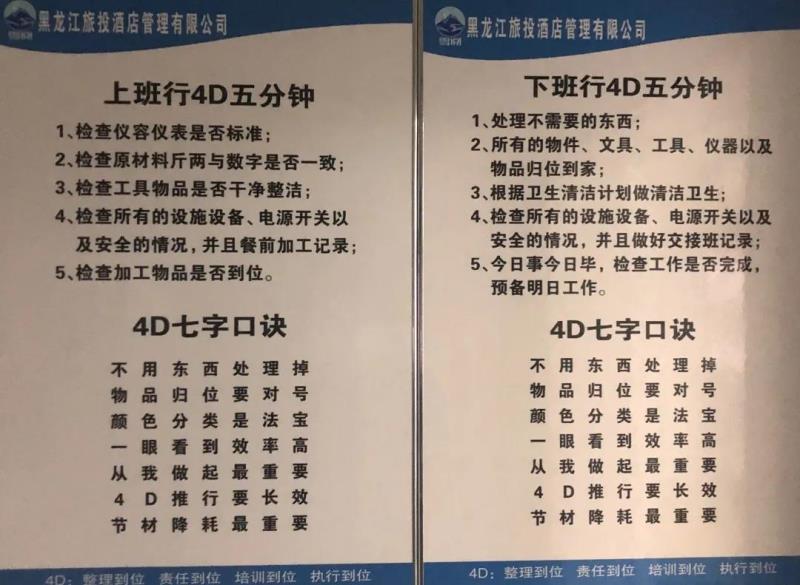 黑龙江旅投酒店管理有限公司
上班行4D五分钟
1、检查仪容仪表是否标准;
2、检查原材料斤两与数字是否一致;
3、检查工具物品是否干净整洁;
4、检查所有的设施设备、电源开关以
及安全的情况,并且餐前加工记录;
5、检查加工物品是否到位。
4D七字口诀
不用东西处理掉
物品归位要对号
颜色分类是法宝
一眼看到效率高
从我做起最重要
4D推行要长效
节材降耗最重要
4D:整理到位 责任到位 培训到位 执行到位
黑龙江旅投酒店管理有限公司
下班行4D五分钟
1、处理不需要的东西;
2、所有的物件、文具、工具、仪器以及
物品归位到家;
3、根据卫生清洁计划做清洁卫生;
4、检查所有的设施设备、电源开关以及
安全的情况,并且做好交接班记录;
5、今日事今日毕,检查工作是否完成,
预备明日工作。
4D七字口诀
不用东西处理掉
物品归位要对号
颜色分类是法宝
一眼看到效率高
从我做起最重要
4D推行要长效
节材降耗最重要
4D:整理到位 责任到位 培训到位 执行到位